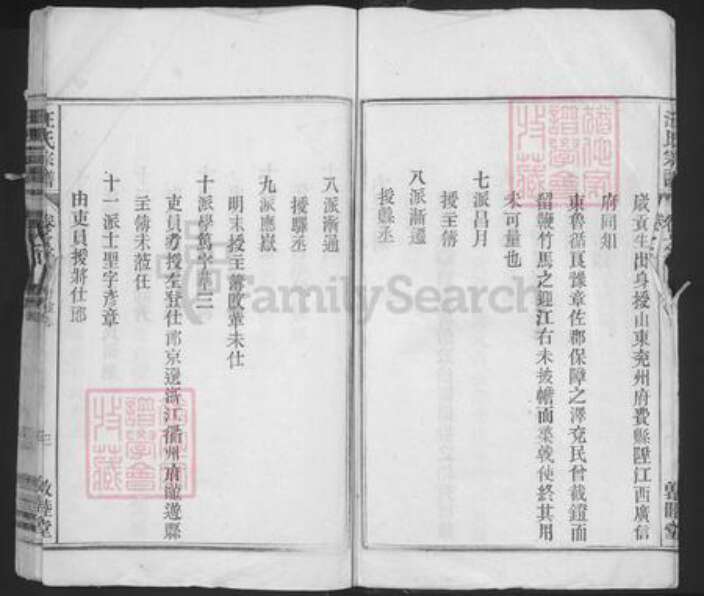 歲貢生出身授山東兗州府費縣陞江西廣信
府同知
東魯循良豫章佐郡保障之澤兗民曾截鐙而
留鞭竹馬之迎江右未披幨而棠戟使終其用
未可量也
七派昌月
授主簿
八派漸遷
授縣丞
汪氏宗譜
八派漸通
授驛丞
九派應嶽
明末授主簿改革未仕
十派學篤字尊三
吏員考授左登仕郎京選浙江衢州府龍游縣
主簿未蒞任
十一派士聖字彥章
由吏員授將仕郎
汪氏宗譜
敦睦堂
譜學會
收藏
FamilySearch